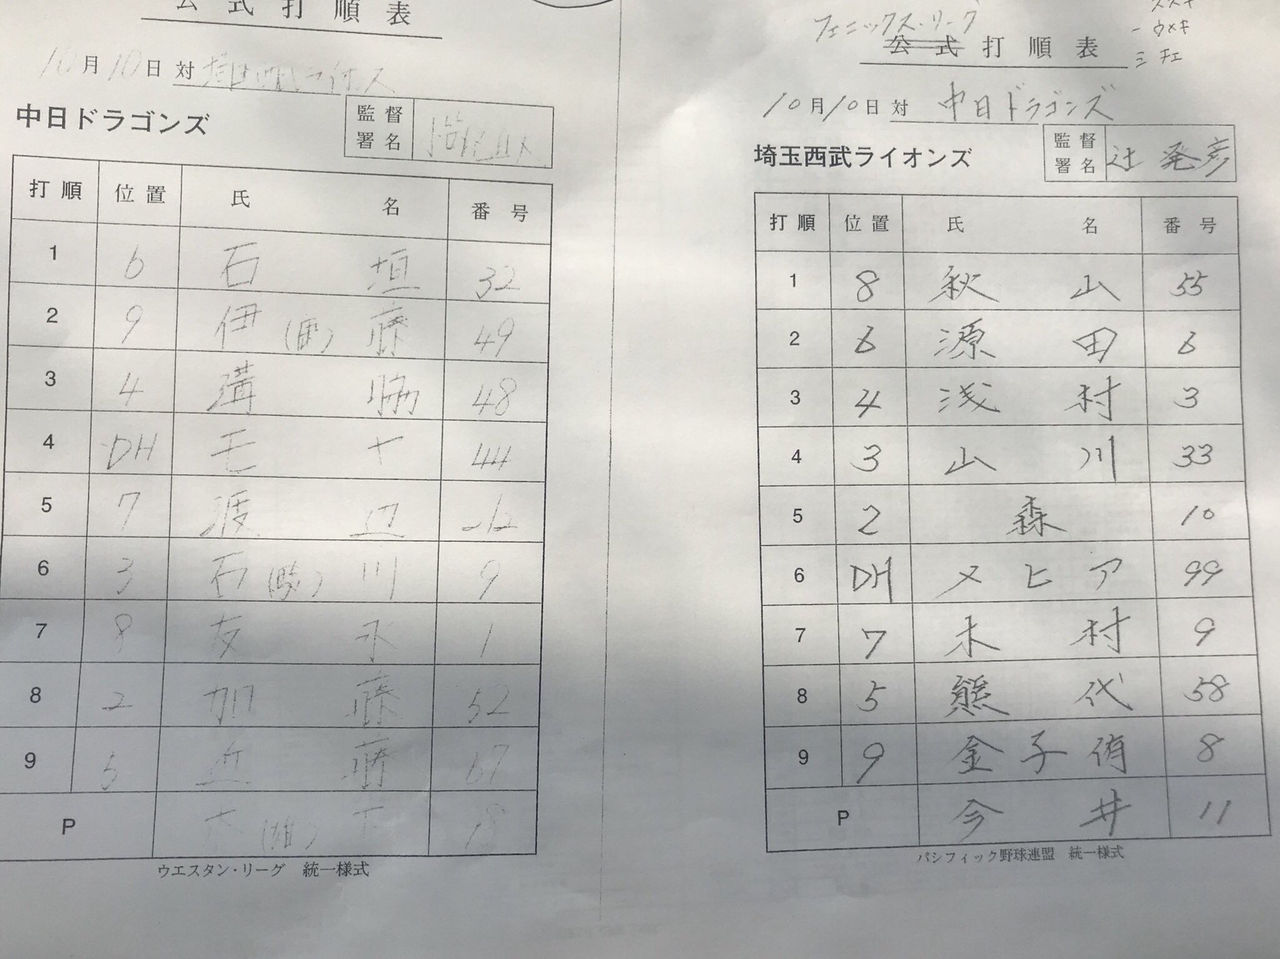 公式打順表
10月10日 対 埼玉西武ライオンズ
中日ドラゴンズ
監督署名
打順 位置 氏名 番号
1 6 石垣 32
2 9 伊(康)藤 49
3 4 溝脇 48
4 DH モヤ 44
5 7 渡辺
6 3 石(駿)川 9
7 8 友永 1
8 2 加藤 52
9 5 近藤 67
P 木(雄)下 18
ウエスタン・リーグ 統一様式
フェニックス・リーグ
公式打順表
ススキ
一 ウメキ
三 チエ
10月10日 対 中日ドラゴンズ
埼玉西武ライオンズ
監督署名 辻 発彦
打順 位置 氏名 番号
1 8 秋山 55
2 6 源田 6
3 4 浅村 3
4 3 山川 33
5 2 森 10
6 DH メヒア 99
7 7 木村 9
8 5 熊代 58
9 9 金子侑 8
P 今井 11
パシフィック野球連盟 統一様式